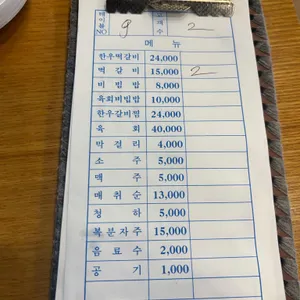 테이블 NO 9 고객수 2
메 뉴
한우떡갈비 24,000
떡 갈 비 15,000 2
비 빔 밥 8,000
육회비빔밥 10,000
한우갈비찜 24,000
육 회 40,000
막 걸 리 4,000
소 주 5,000
맥 주 5,000
매 취 순 13,000
청 하 5,000
복 분 자 주 15,000
음 료 수 2,000
공 기 1,000